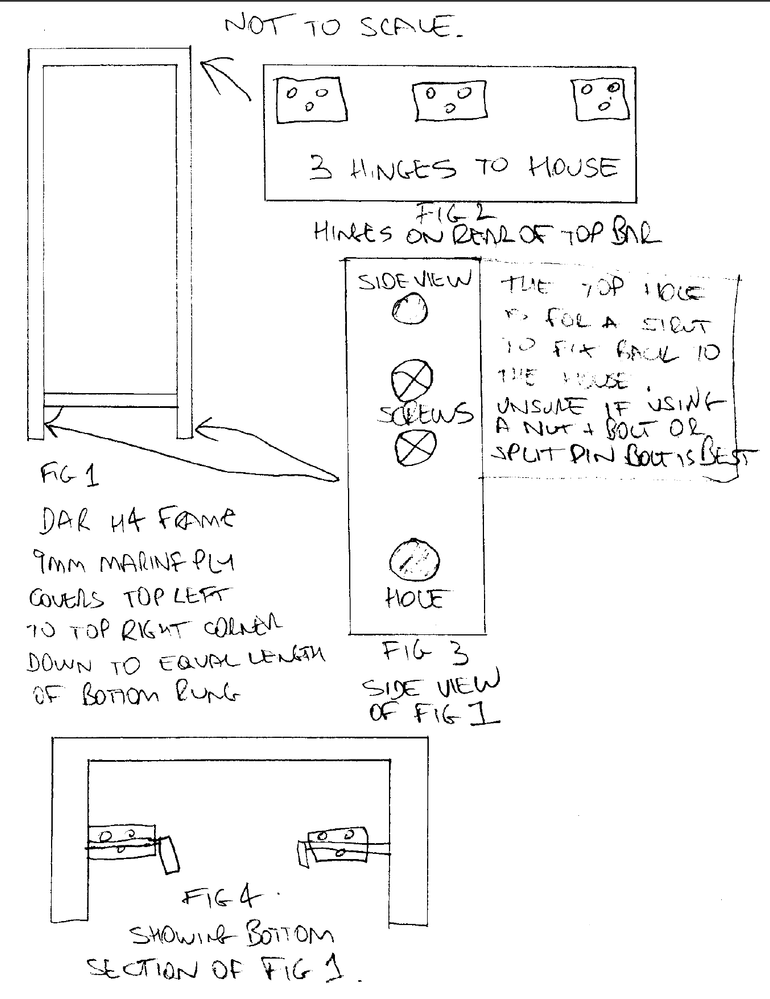 NOT TO SCALE.
3 HINGES TO HOUSE
FIG 2
HINGES ON REAR OF TOP BAR
SIDE VIEW
SCREWS
HOLE
THE TOP HOLE
IS FOR A STRUT
TO FIX BACK TO
THE HOUSE.
UNSURE IF USING
A NUT + BOLT OR
SPLIT PIN BOLT IS BEST
FIG 1
DAR H4 FRAME
9MM MARINE PLY
COVERS TOP LEFT
TO TOP RIGHT CORNER
DOWN TO EQUAL LENGTH
OF BOTTOM RUNG
FIG 3
SIDE VIEW
OF FIG 1
FIG 4.
SHOWING BOTTOM
SECTION OF FIG 1.